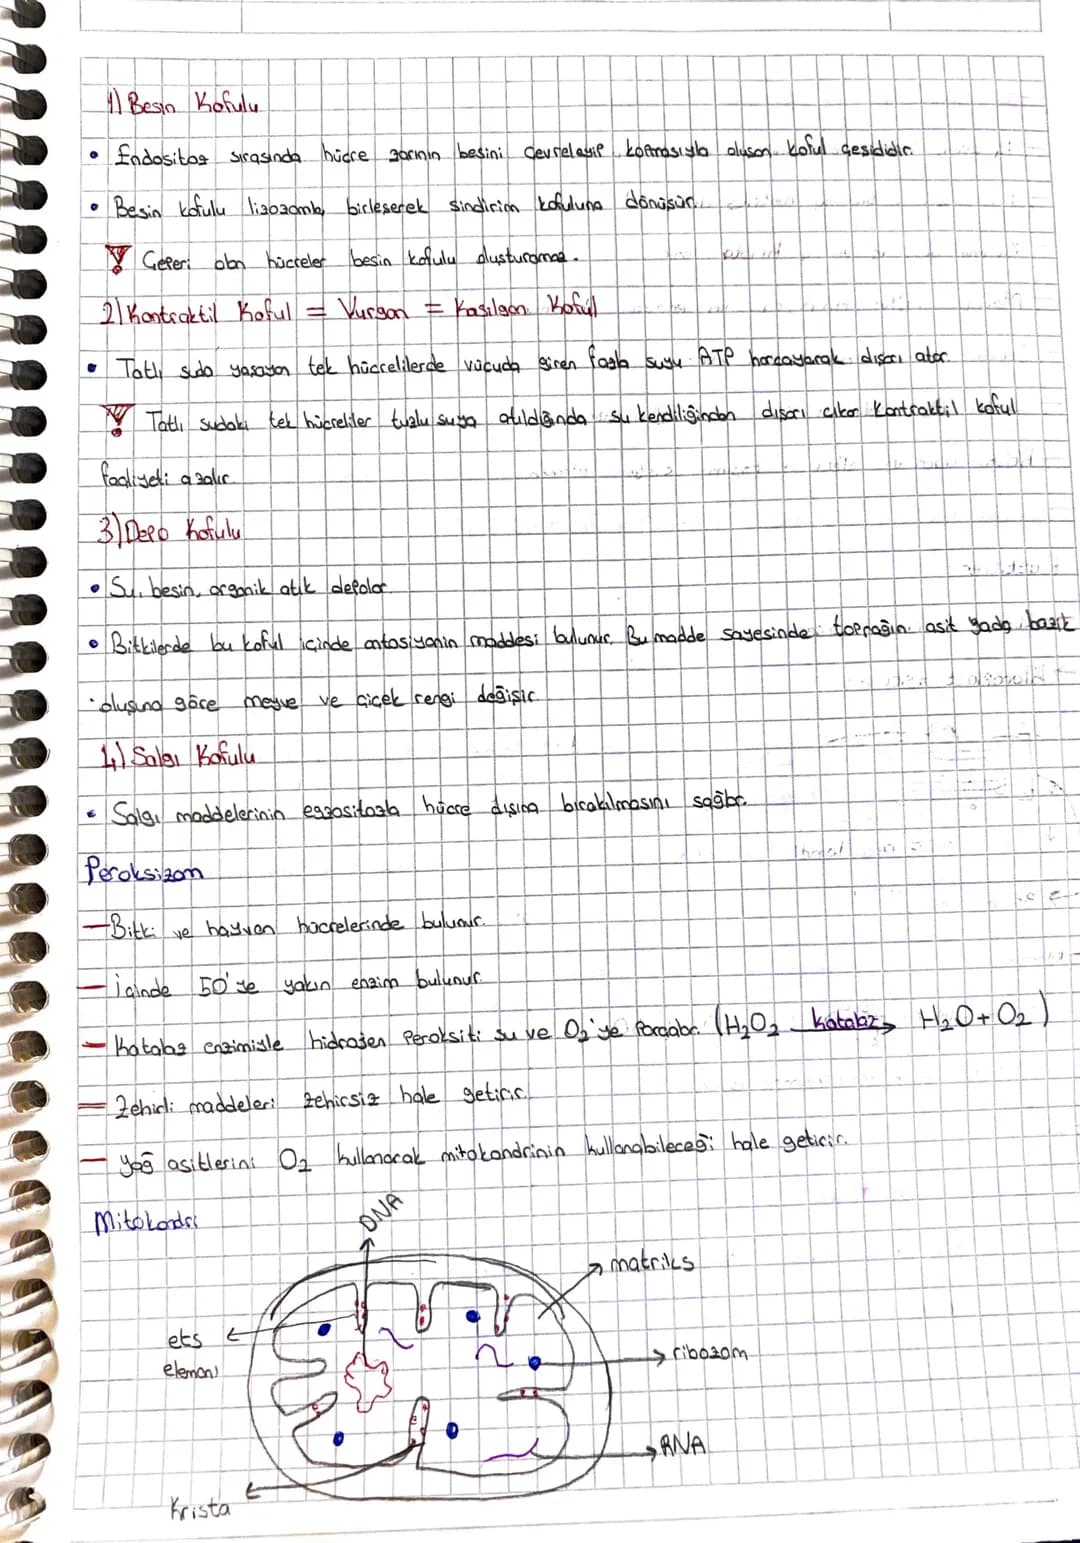 1) Besin Kofulu
• Endositoz sırasında hücre zarının besini çevreleyip koparmasıyla oluşan koful çeşididir.
• Besin kofulu lizozomla birleşerek sindirim kofuluna dönüşür.
Çeperi olan hücreler besin kofulu oluşturamaz.
2) Kontraktil Koful = Vurgan = Kasılgan Koful
• Tatlı suda yaşayan tek hücrelilerde vücuda giren fazla suyu ATP harcayarak dışarı atar.
Tatlı sudaki tek hücreliler tuzlu suya atıldığında su kendiliğinden dışarı çıkar Kontraktil koful
faaliyeti azalır
3) Depo Kofulu
• Su, besin, organik atık depolar.
• Bitkilerde bu koful içinde antosiyanin maddesi bulunur. Bu madde sayesinde toprağın asit yada bazik
oluşuna göre meyve ve çiçek rengi değişir
4) Salgı Kofulu
• Salgı maddelerinin egzositozla hücre dışına bırakılmasını sağlar.
Peroksizom
— Bitki ve hayvan hücrelerinde bulunur.
— içinde 50'ye yakın enzim bulunur.
— Katalaz enzimiyle hidrojen peroksiti su ve O₂'ye parçalar. (H₂O₂ katalaz→ H₂O + O₂)
— Zehirli maddeleri zehirsiz hale getirir.
— yağ asitlerini O₂ kullanarak mitokondrinin kullanabileceği hale getirir.
Mitokondri
DNA
matriks
ets
elemanı
ribozom
RNA
Krista